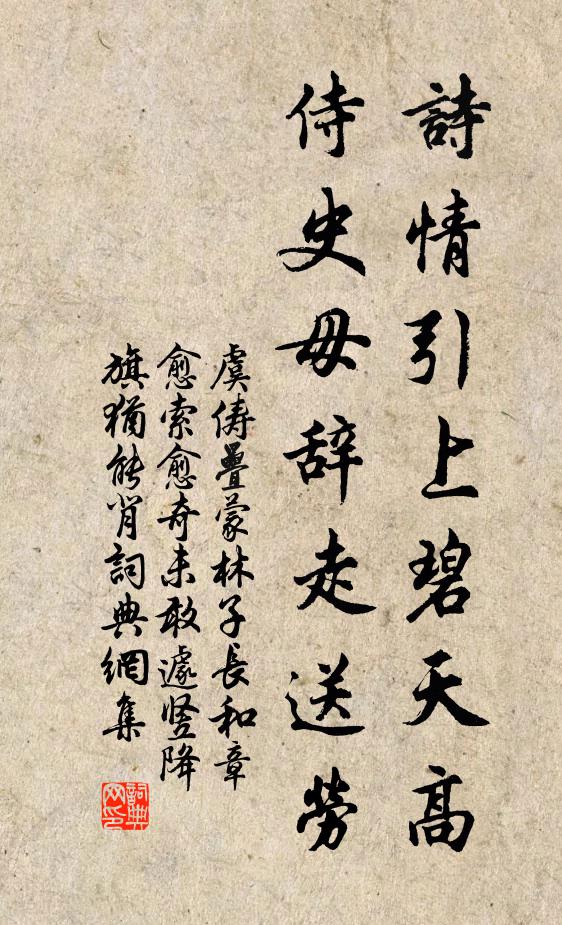 詩情引上碧天高
侍史毋辞走送勞
虞儔疊蒙林子長和章
愈索愈奇未敢遽竖降
旗猶能肖詞典網集
詞典網印